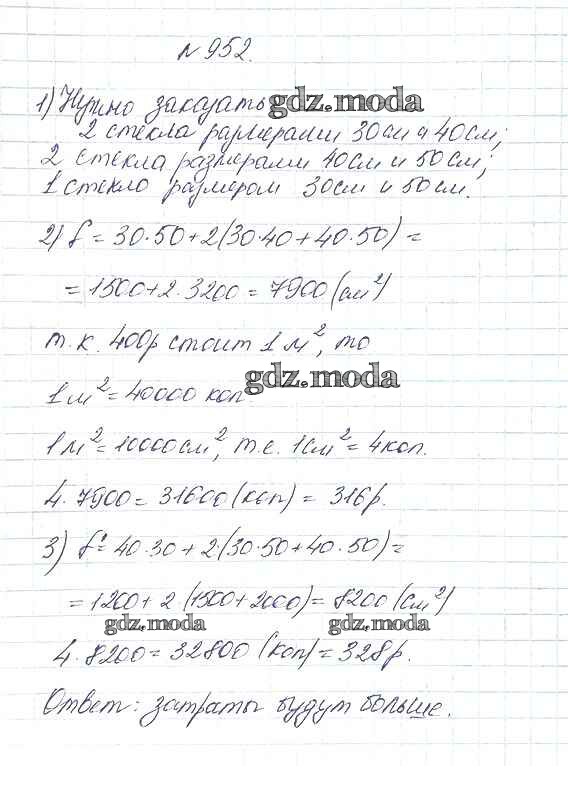 №952.
1) Нужно заказать gdz.moda
2 стекла размерами 30см и 40см;
2 стекла размерами 40см и 50см;
1 стекло размером 30см и 50см.
2) S = 30·50+2(30·40+40·50) =
= 1500+2·3200 = 7900 (см²)
т.к. 400р стоит 1м², то
gdz.moda
1м² = 40000 коп.
1м² = 10000см², т.е. 1см² = 4коп.
4·7900 = 31600 (коп) = 316р.
3) S = 40·30 + 2·(30·50+40·50) =
= 1200+ 2 (1500+2000) = 8200 (см²)
gdz.moda gdz.moda
4·8200 = 32800 (коп) = 328р.
Ответ: затраты будут больше.